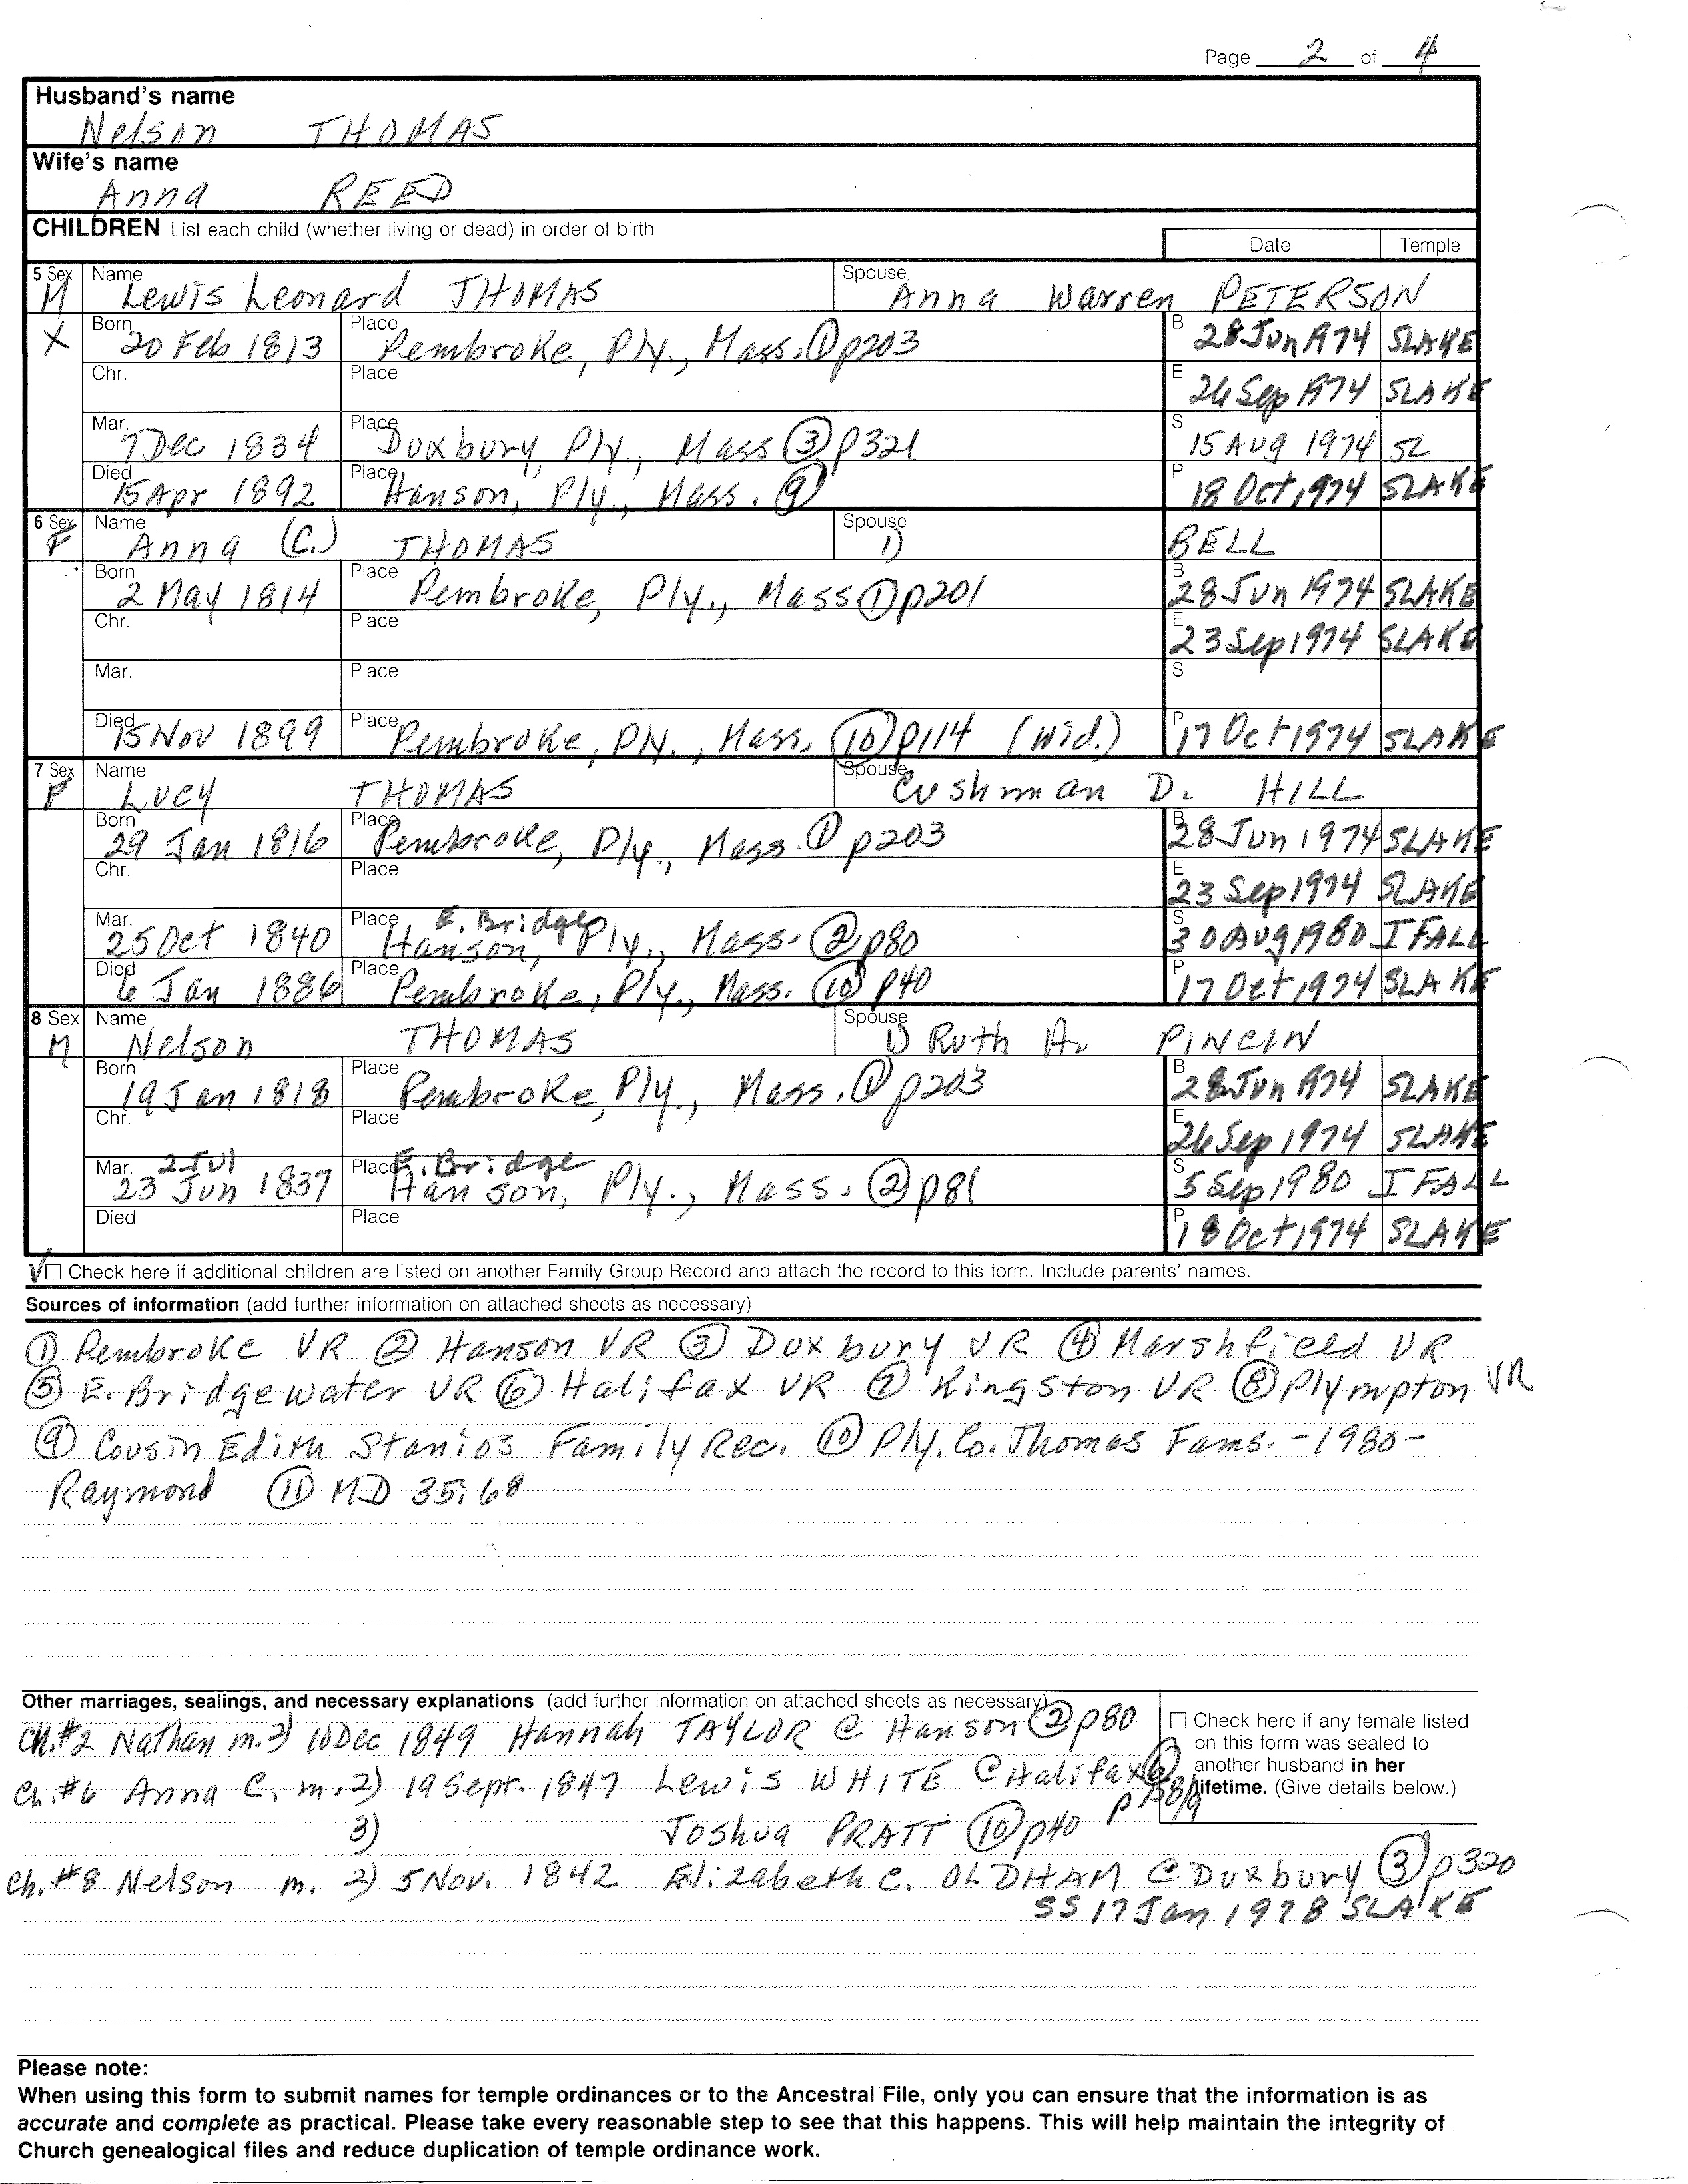 Page 2 of 4
Husband's name
Nelson THOMAS
Wife's name
Anna REED
CHILDREN List each child (whether living or dead) in order of birth
Date Temple
5 Sex Name Spouse
M Lewis Leonard THOMAS Anna Warren PETERSON
X Born 20 Feb 1813 Place Pembroke, Ply., Mass. ① p203 B 28 Jun 1974 SLAKE
Chr. Place E 26 Sep 1974 SLAKE
Mar. 7 Dec 1834 Place Duxbury, Ply., Mass ③ p321 S 15 Aug 1974 SL
Died 15 Apr 1892 Place Hanson, Ply., Mass. ⑨ P 18 Oct 1974 SLAKE
6 Sex Name Spouse
F Anna (C.) THOMAS 1) BELL
Born 2 May 1814 Place Pembroke, Ply., Mass ① p201 B 28 Jun 1974 SLAKE
Chr. Place E 23 Sep 1974 SLAKE
Mar. Place S
Died 15 Nov 1899 Place Pembroke, Ply., Mass. ⑩ p114 (Wid.) P 17 Oct 1974 SLAKE
7 Sex Name Spouse
F Lucy THOMAS Cushman D. HILL
Born 29 Jan 1816 Place Pembroke, Ply., Mass. ① p203 B 28 Jun 1974 SLAKE
Chr. Place E 23 Sep 1974 SLAKE
E. Bridge
Mar. 25 Oct 1840 Place Hanson, Ply., Mass. ② p80 S 30 Aug 1980 I FALL
Died 6 Jan 1886 Place Pembroke, Ply., Mass. ⑩ p40 P 17 Oct 1974 SLAKE
8 Sex Name Spouse
M Nelson THOMAS 1) Ruth A. PINCIN
Born 19 Jan 1818 Place Pembroke, Ply., Mass. ① p203 B 28 Jun 1974 SLAKE
Chr. Place E 26 Sep 1974 SLAKE
2 Jul E. Bridge
Mar. 23 Jun 1837 Place Hanson, Ply., Mass. ② p81 S 5 Sep 1980 I FALL
Died Place P 18 Oct 1974 SLAKE
✓ ☐ Check here if additional children are listed on another Family Group Record and attach the record to this form. Include parents' names.
Sources of information (add further information on attached sheets as necessary)
① Pembroke VR ② Hanson VR ③ Duxbury VR ④ Marshfield VR
⑤ E. Bridgewater VR ⑥ Halifax VR ⑦ Kingston VR ⑧ Plympton VR
⑨ Cousin Edith Stanios Family Rec. ⑩ Ply. Co. Thomas Fams. -1980-
Raymond ⑪ MD 35:68
Other marriages, sealings, and necessary explanations (add further information on attached sheets as necessary)
Ch. #2 Nathan m. 2) 10 Dec 1849 Hannah TAYLOR @ Hanson ② p80
Ch. #6 Anna C. m. 2) 19 Sept. 1847 Lewis WHITE @ Halifax ⑥
3) Joshua PRATT ⑩ p40
Ch. #8 Nelson m. 2) 5 Nov. 1842 Elizabeth C. OLDHAM @ Duxbury ③ p320
SS 17 Jan 1978 SLAKE
☐ Check here if any female listed
on this form was sealed to
another husband in her
lifetime. (Give details below.)
Please note:
When using this form to submit names for temple ordinances or to the Ancestral File, only you can ensure that the information is as
accurate and complete as practical. Please take every reasonable step to see that this happens. This will help maintain the integrity of
Church genealogical files and reduce duplication of temple ordinance work.